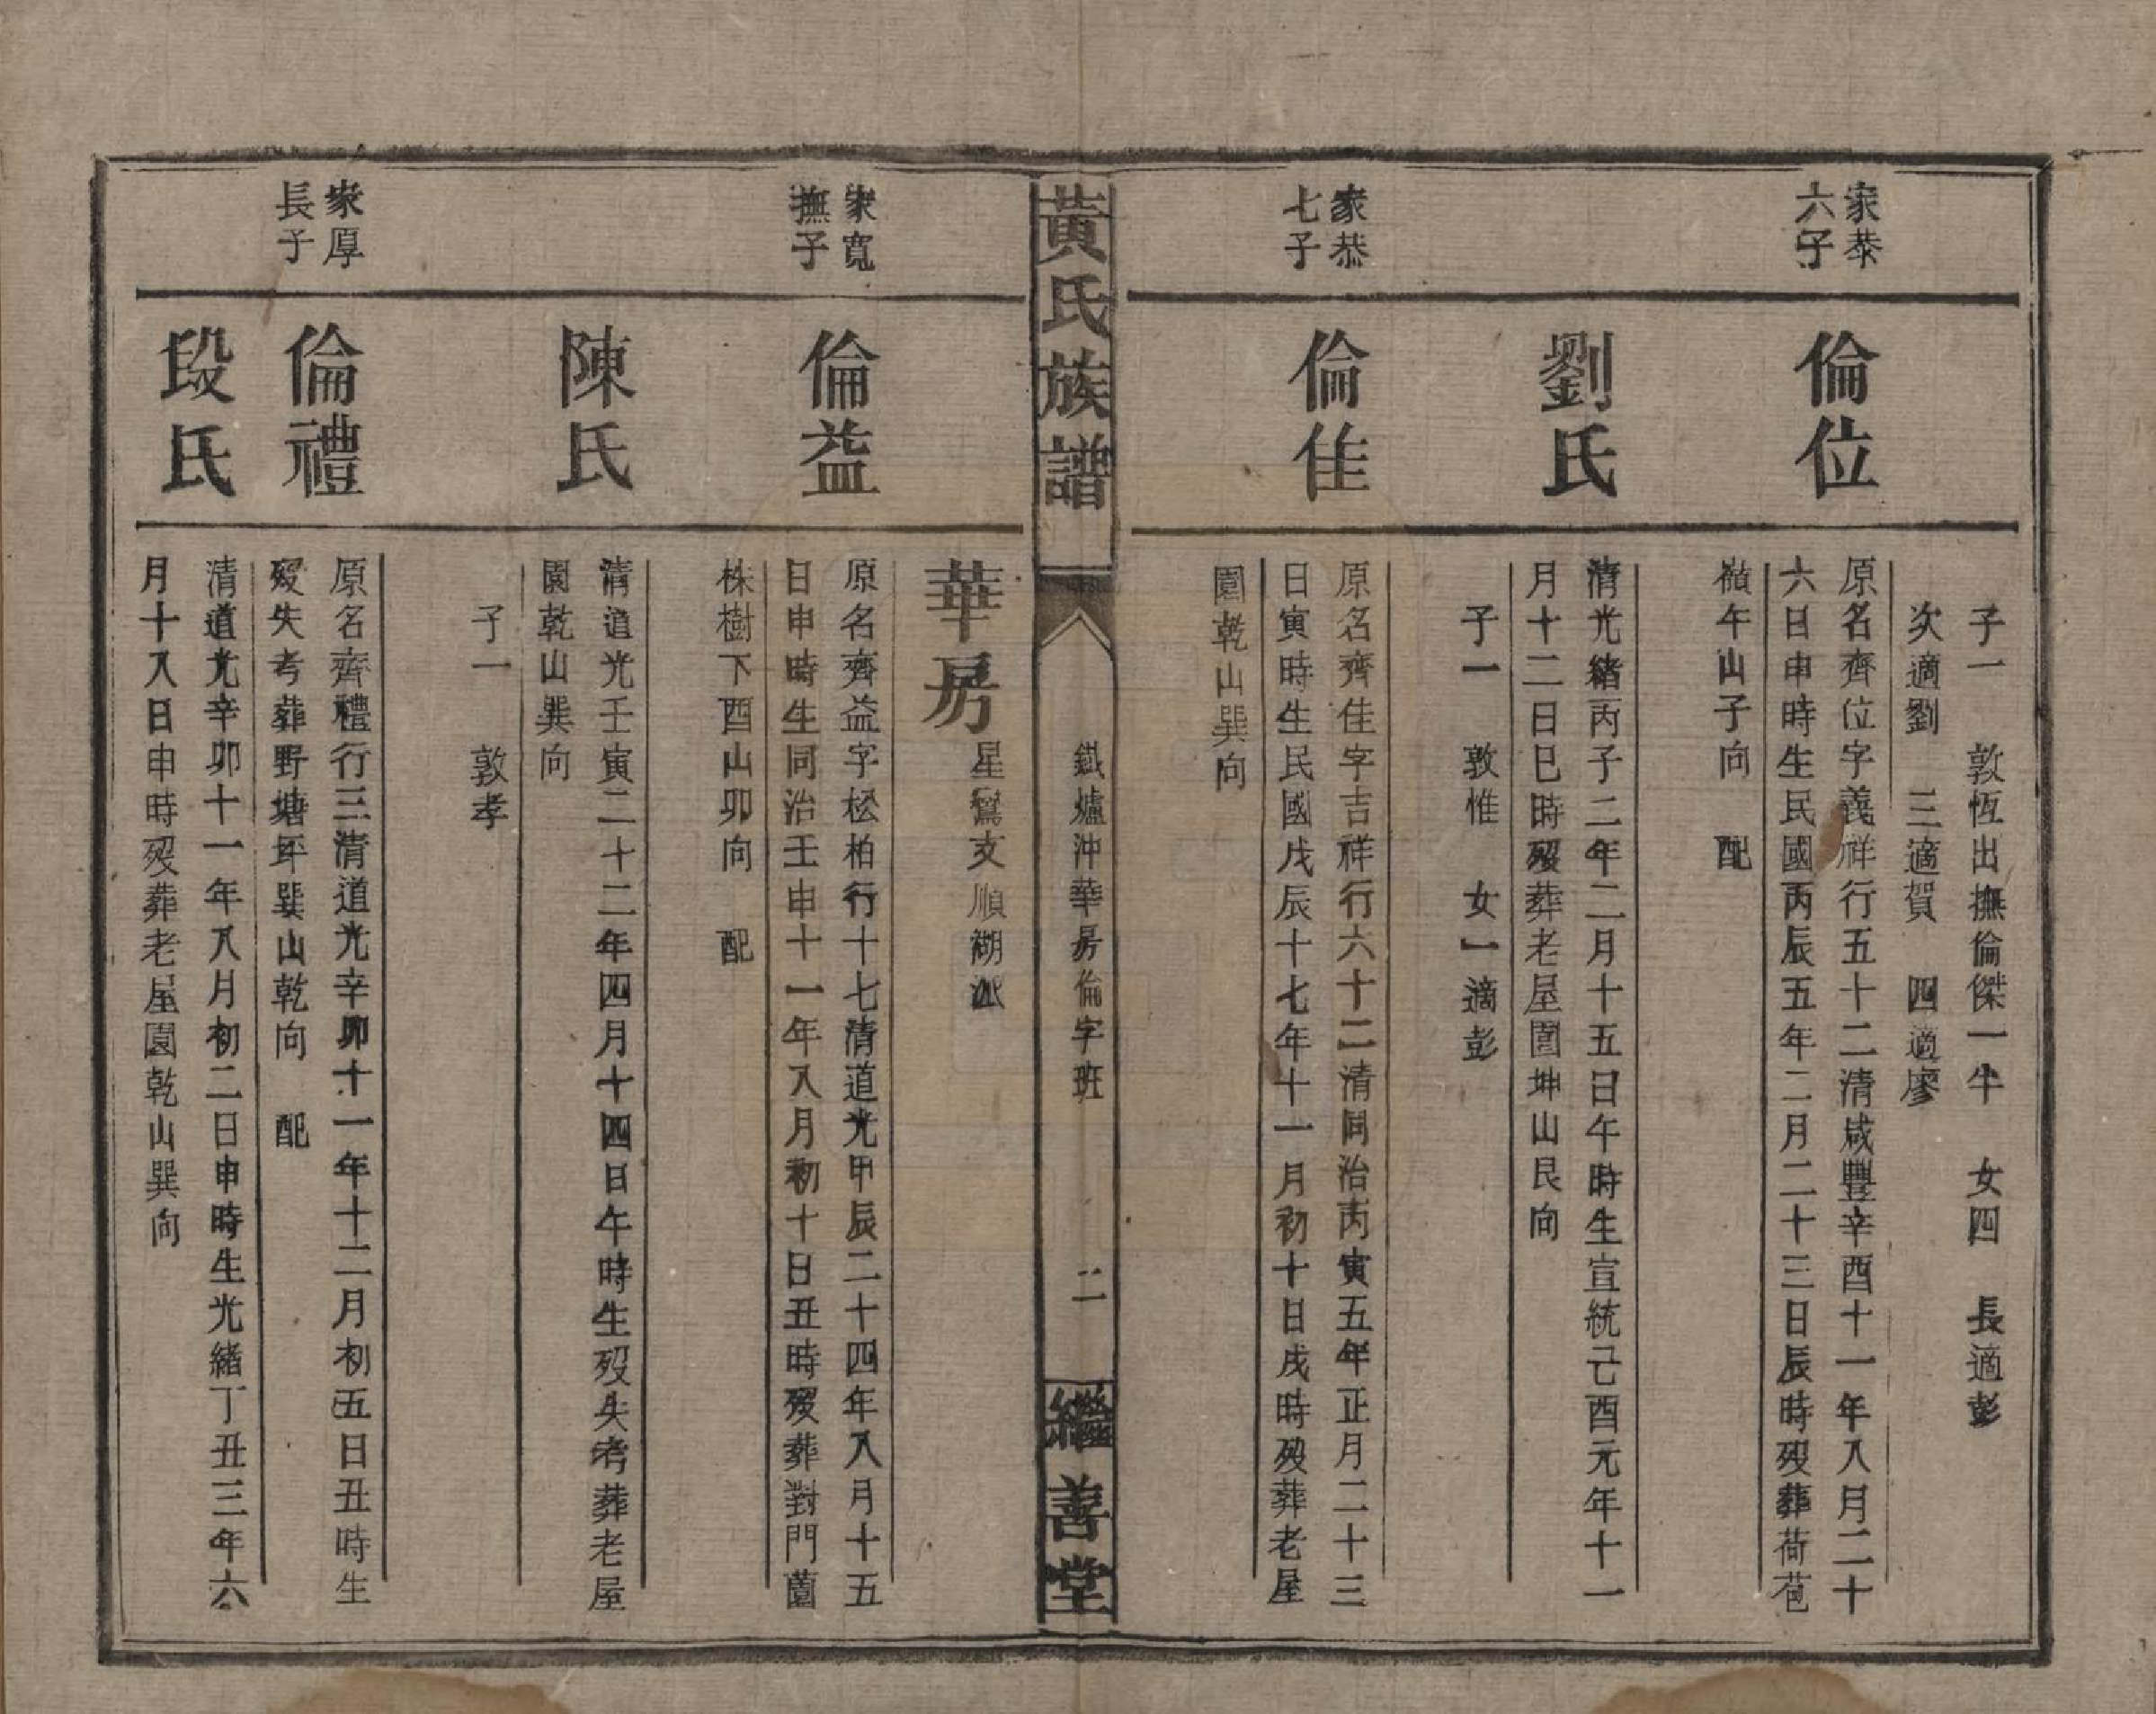 子一　敦恆出撫倫傑一半　女四　長適彭
次適劉　三適賀　四適廖
家恭
六子
倫位
原名齊位字義祥行五十二清咸豐辛酉十一年八月二十
六日申時生民國丙辰五年二月二十三日辰時歿葬荷苞
嶺午山子向　配
劉氏
清光緒丙子二年二月十五日午時生宣統己酉元年十一
月十二日巳時歿葬老屋園坤山艮向
子一　敦惟　女一適彭
家恭
七子
倫佳
原名齊佳字吉祥行六十二清同治丙寅五年正月二十三
日寅時生民國戊辰十七年十一月初十日戌時歿葬老屋
園乾山巽向
黃氏族譜
鐵爐沖華房倫字班
二
繼善堂
華房
星鸞支順湖派
家寬
撫子
倫益
原名齊益字松柏行十七清道光甲辰二十四年八月十五
日申時生同治壬申十一年八月初十日丑時歿葬對門薗
株樹下酉山卯向　配
陳氏
清道光壬寅二十二年四月十四日午時生歿失考葬老屋
園乾山巽向
子一　敦孝
家厚
長子
倫禮
原名齊禮行三清道光辛卯十一年十二月初五日丑時生
歿失考葬野塘坪巽山乾向　配
段氏
清道光辛卯十一年八月初二日申時生光緒丁丑三年六
月十八日申時歿葬老屋園乾山巽向